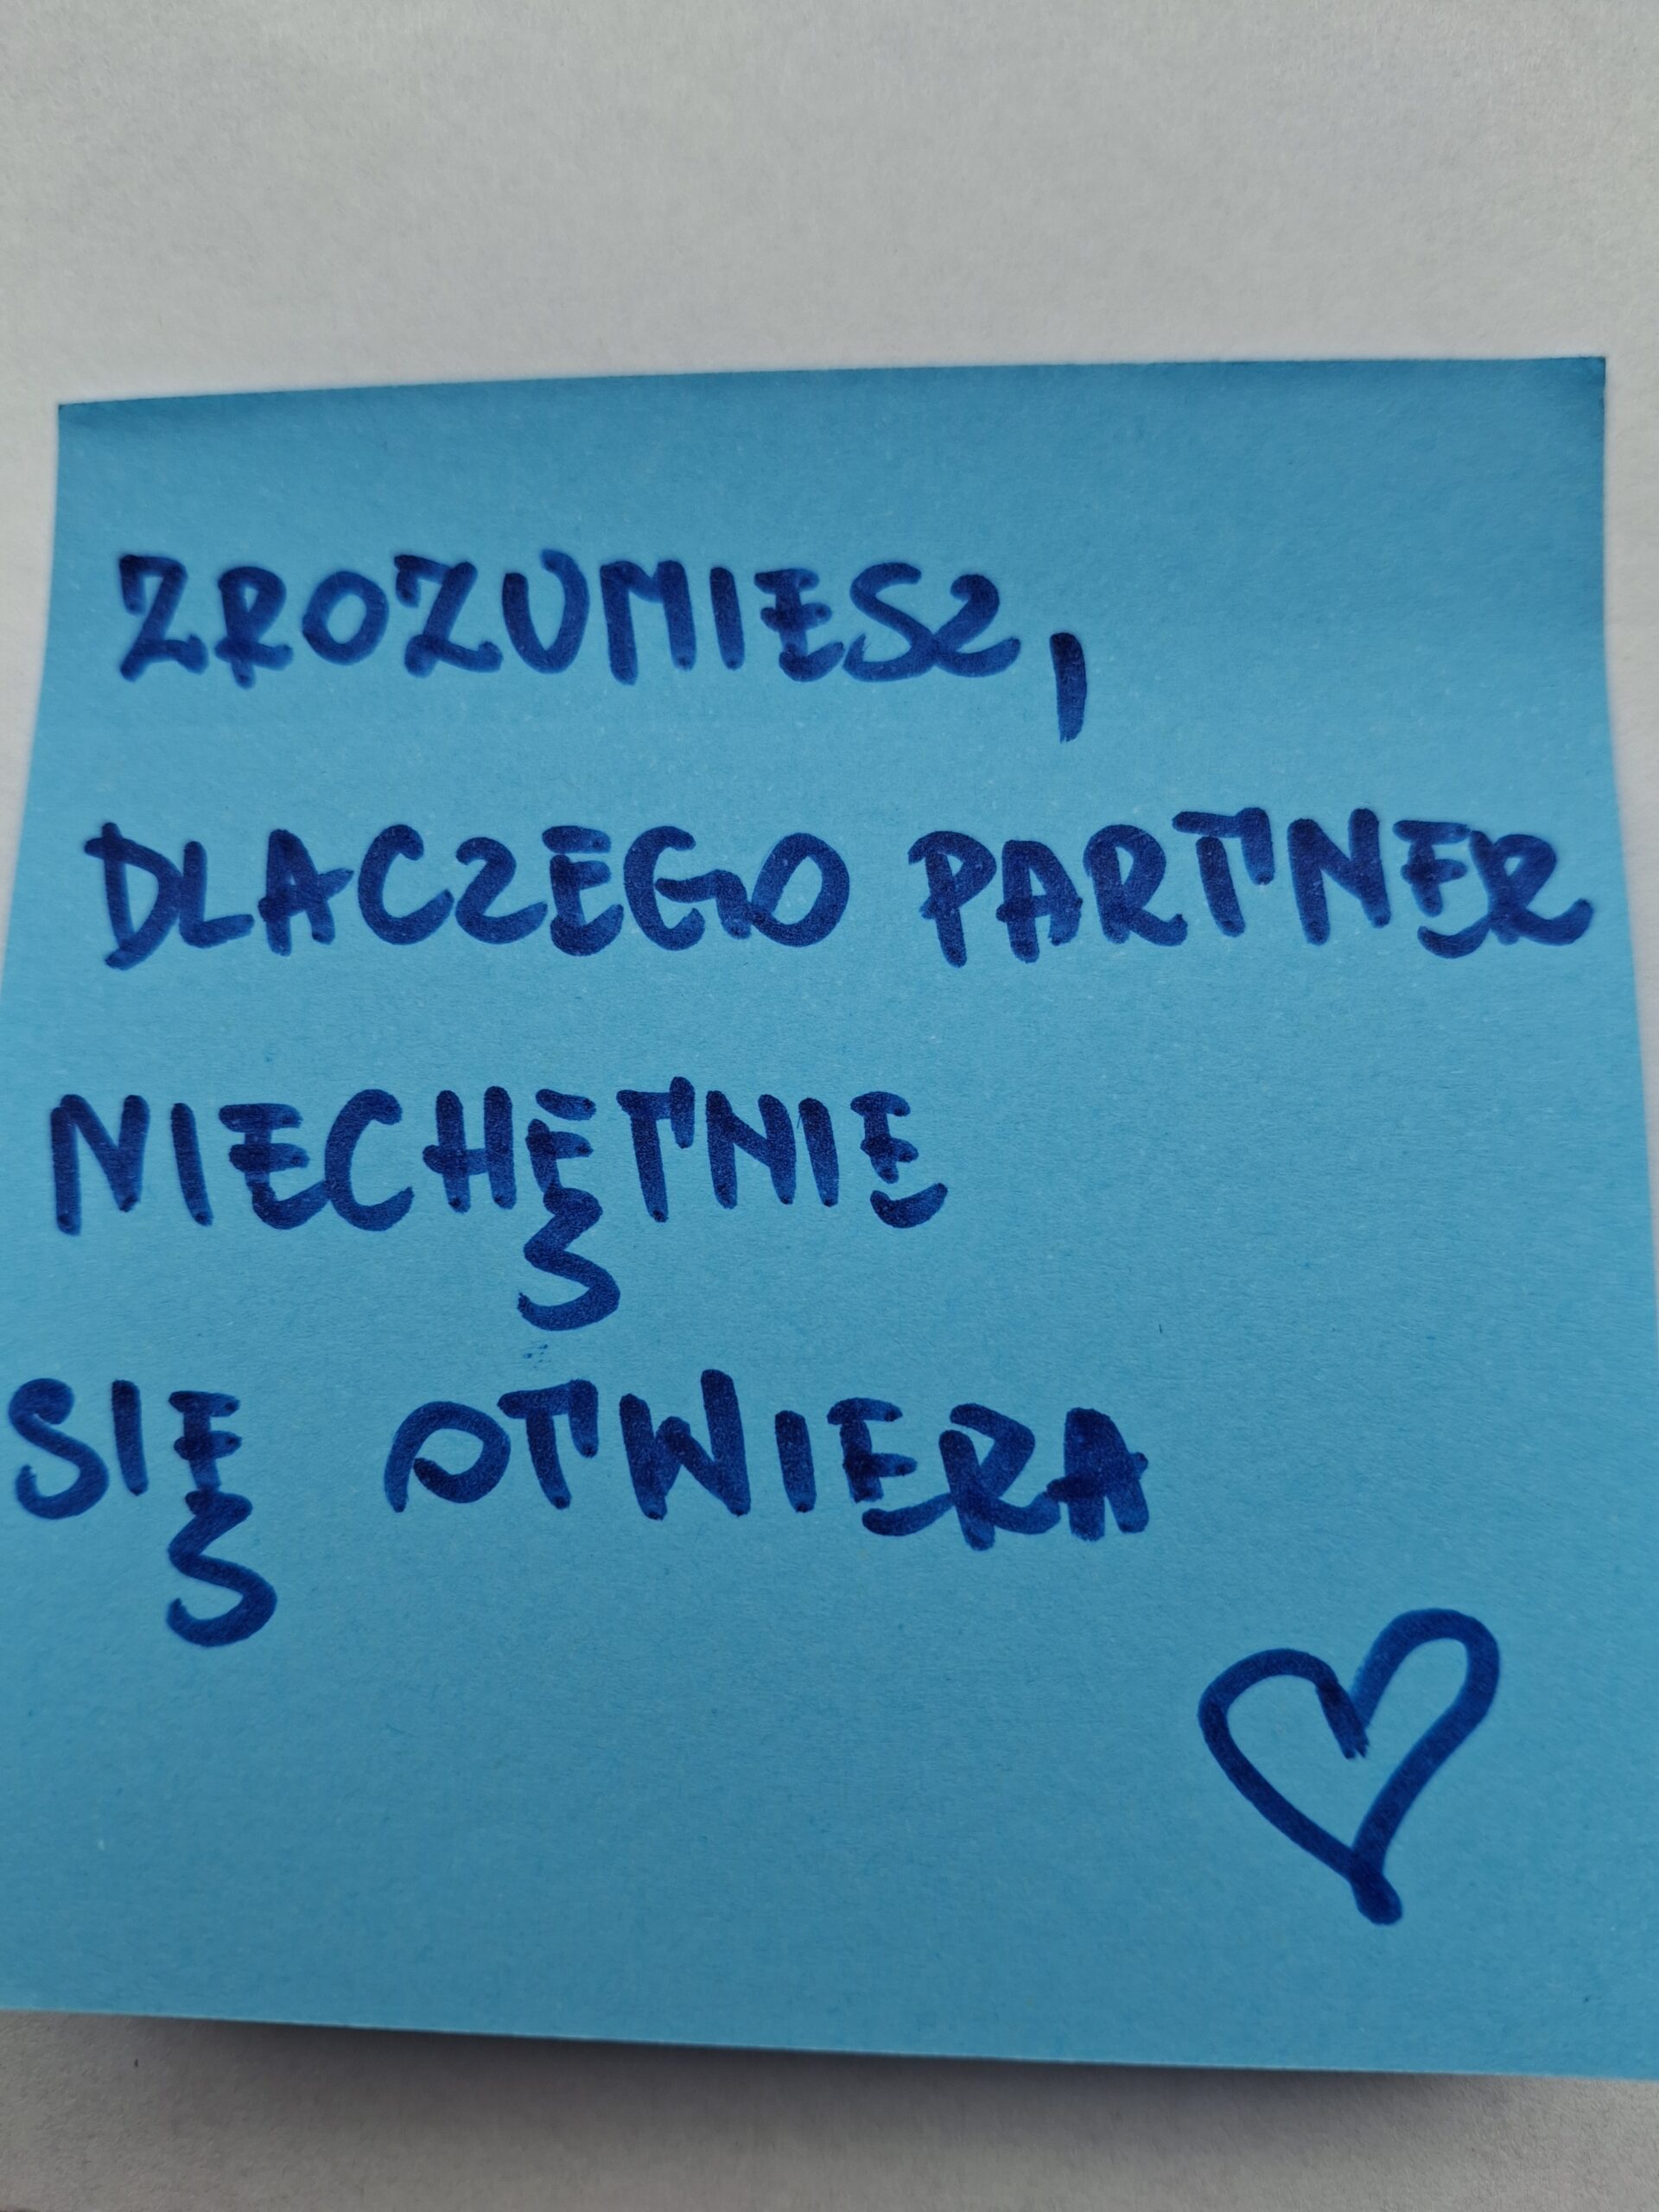 ZROZUMIESZ,
DLACZEGO PARTNER
NIECHĘTNIE
SIĘ OTWIERA